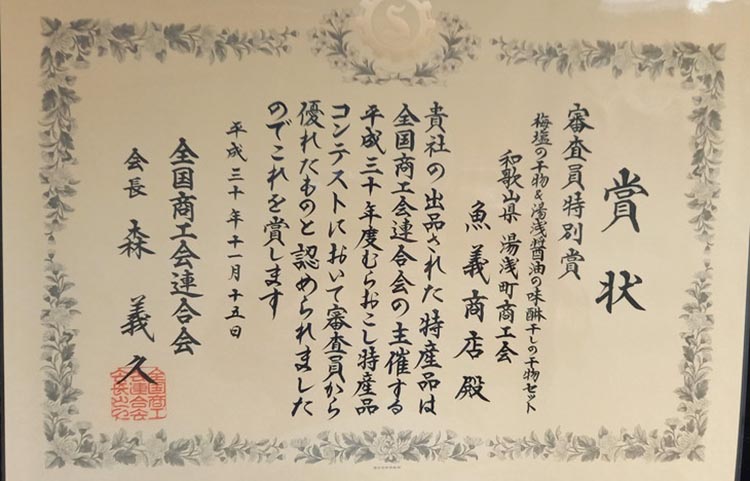 賞状
審査員特別賞
梅塩の干物&湯浅醤油の味醂干しの干物セット
和歌山県 湯浅町商工会
魚義商店殿
貴社の出品された特産品は
全国商工会連合会の主催する
平成三十年度むらおこし特産品
コンテストにおいて審査員から
優れたものと認められました
のでこれを賞します
平成三十年十一月十五日
全国商工会連合会
会長 森義久